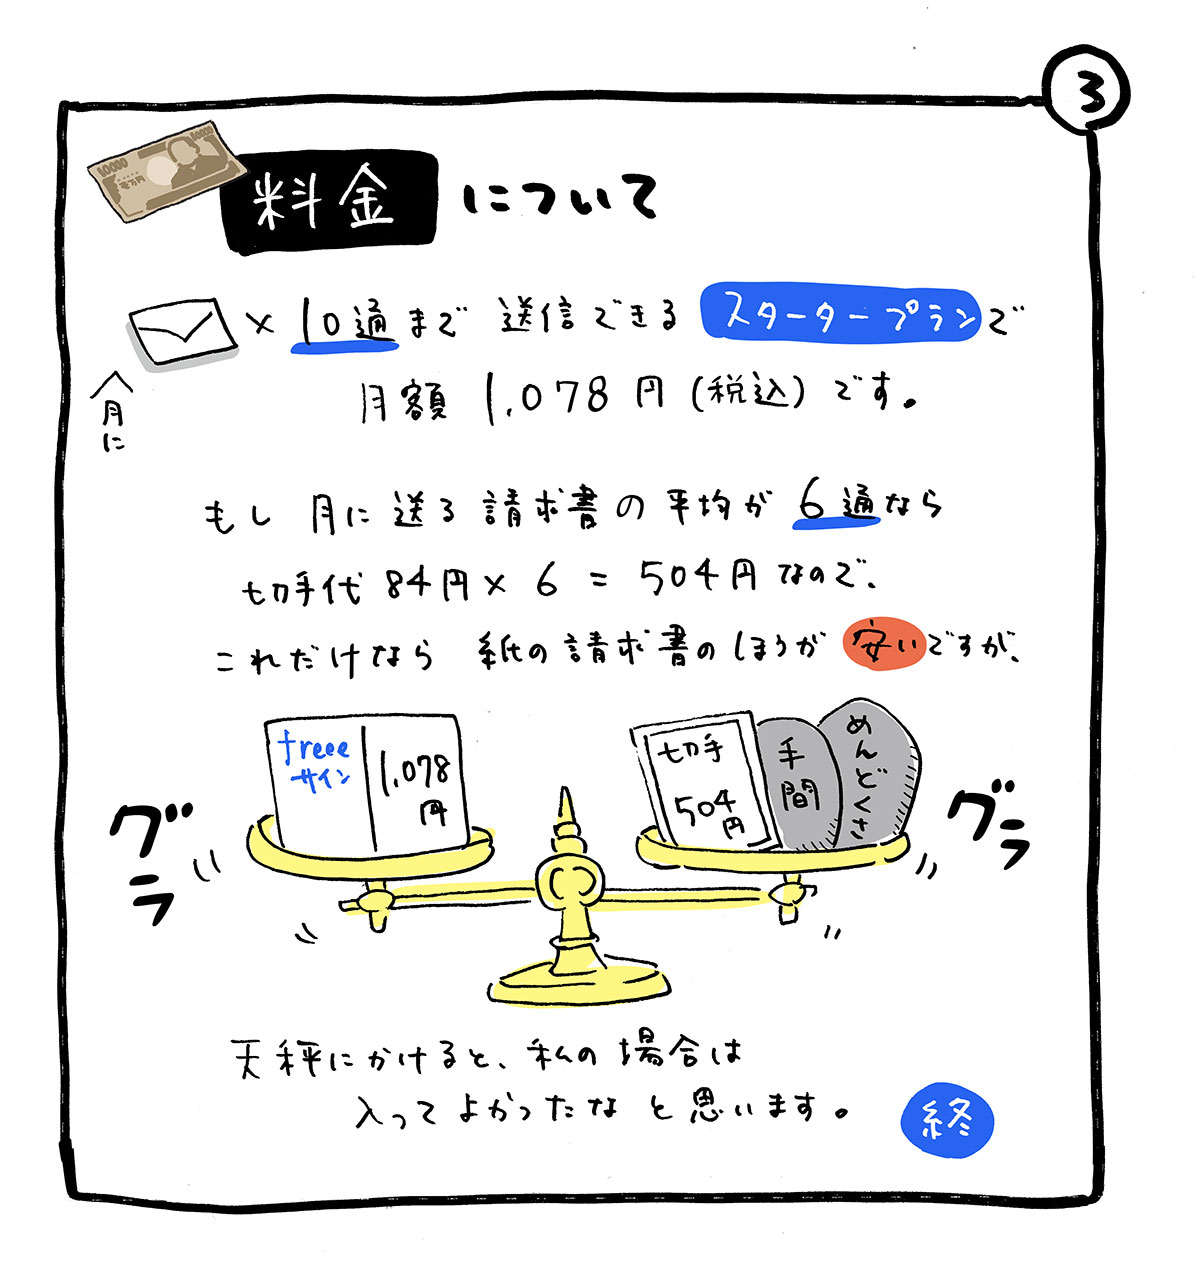 3
10000
10000
壱万円
料金について
×10通まで 送信できる スタータープランで
月に
月額 1,078円(税込)です。
もし 月に送る請求書の平均が 6通なら
切手代84円×6=504円なので、
これだけなら 紙の請求書のほうが 安いですが、
freee
サイン
1,078
円
切手
504
円
手間
めんどくさ
グラ
グラ
天秤にかけると、私の場合は
入ってよかったなと思います。
終